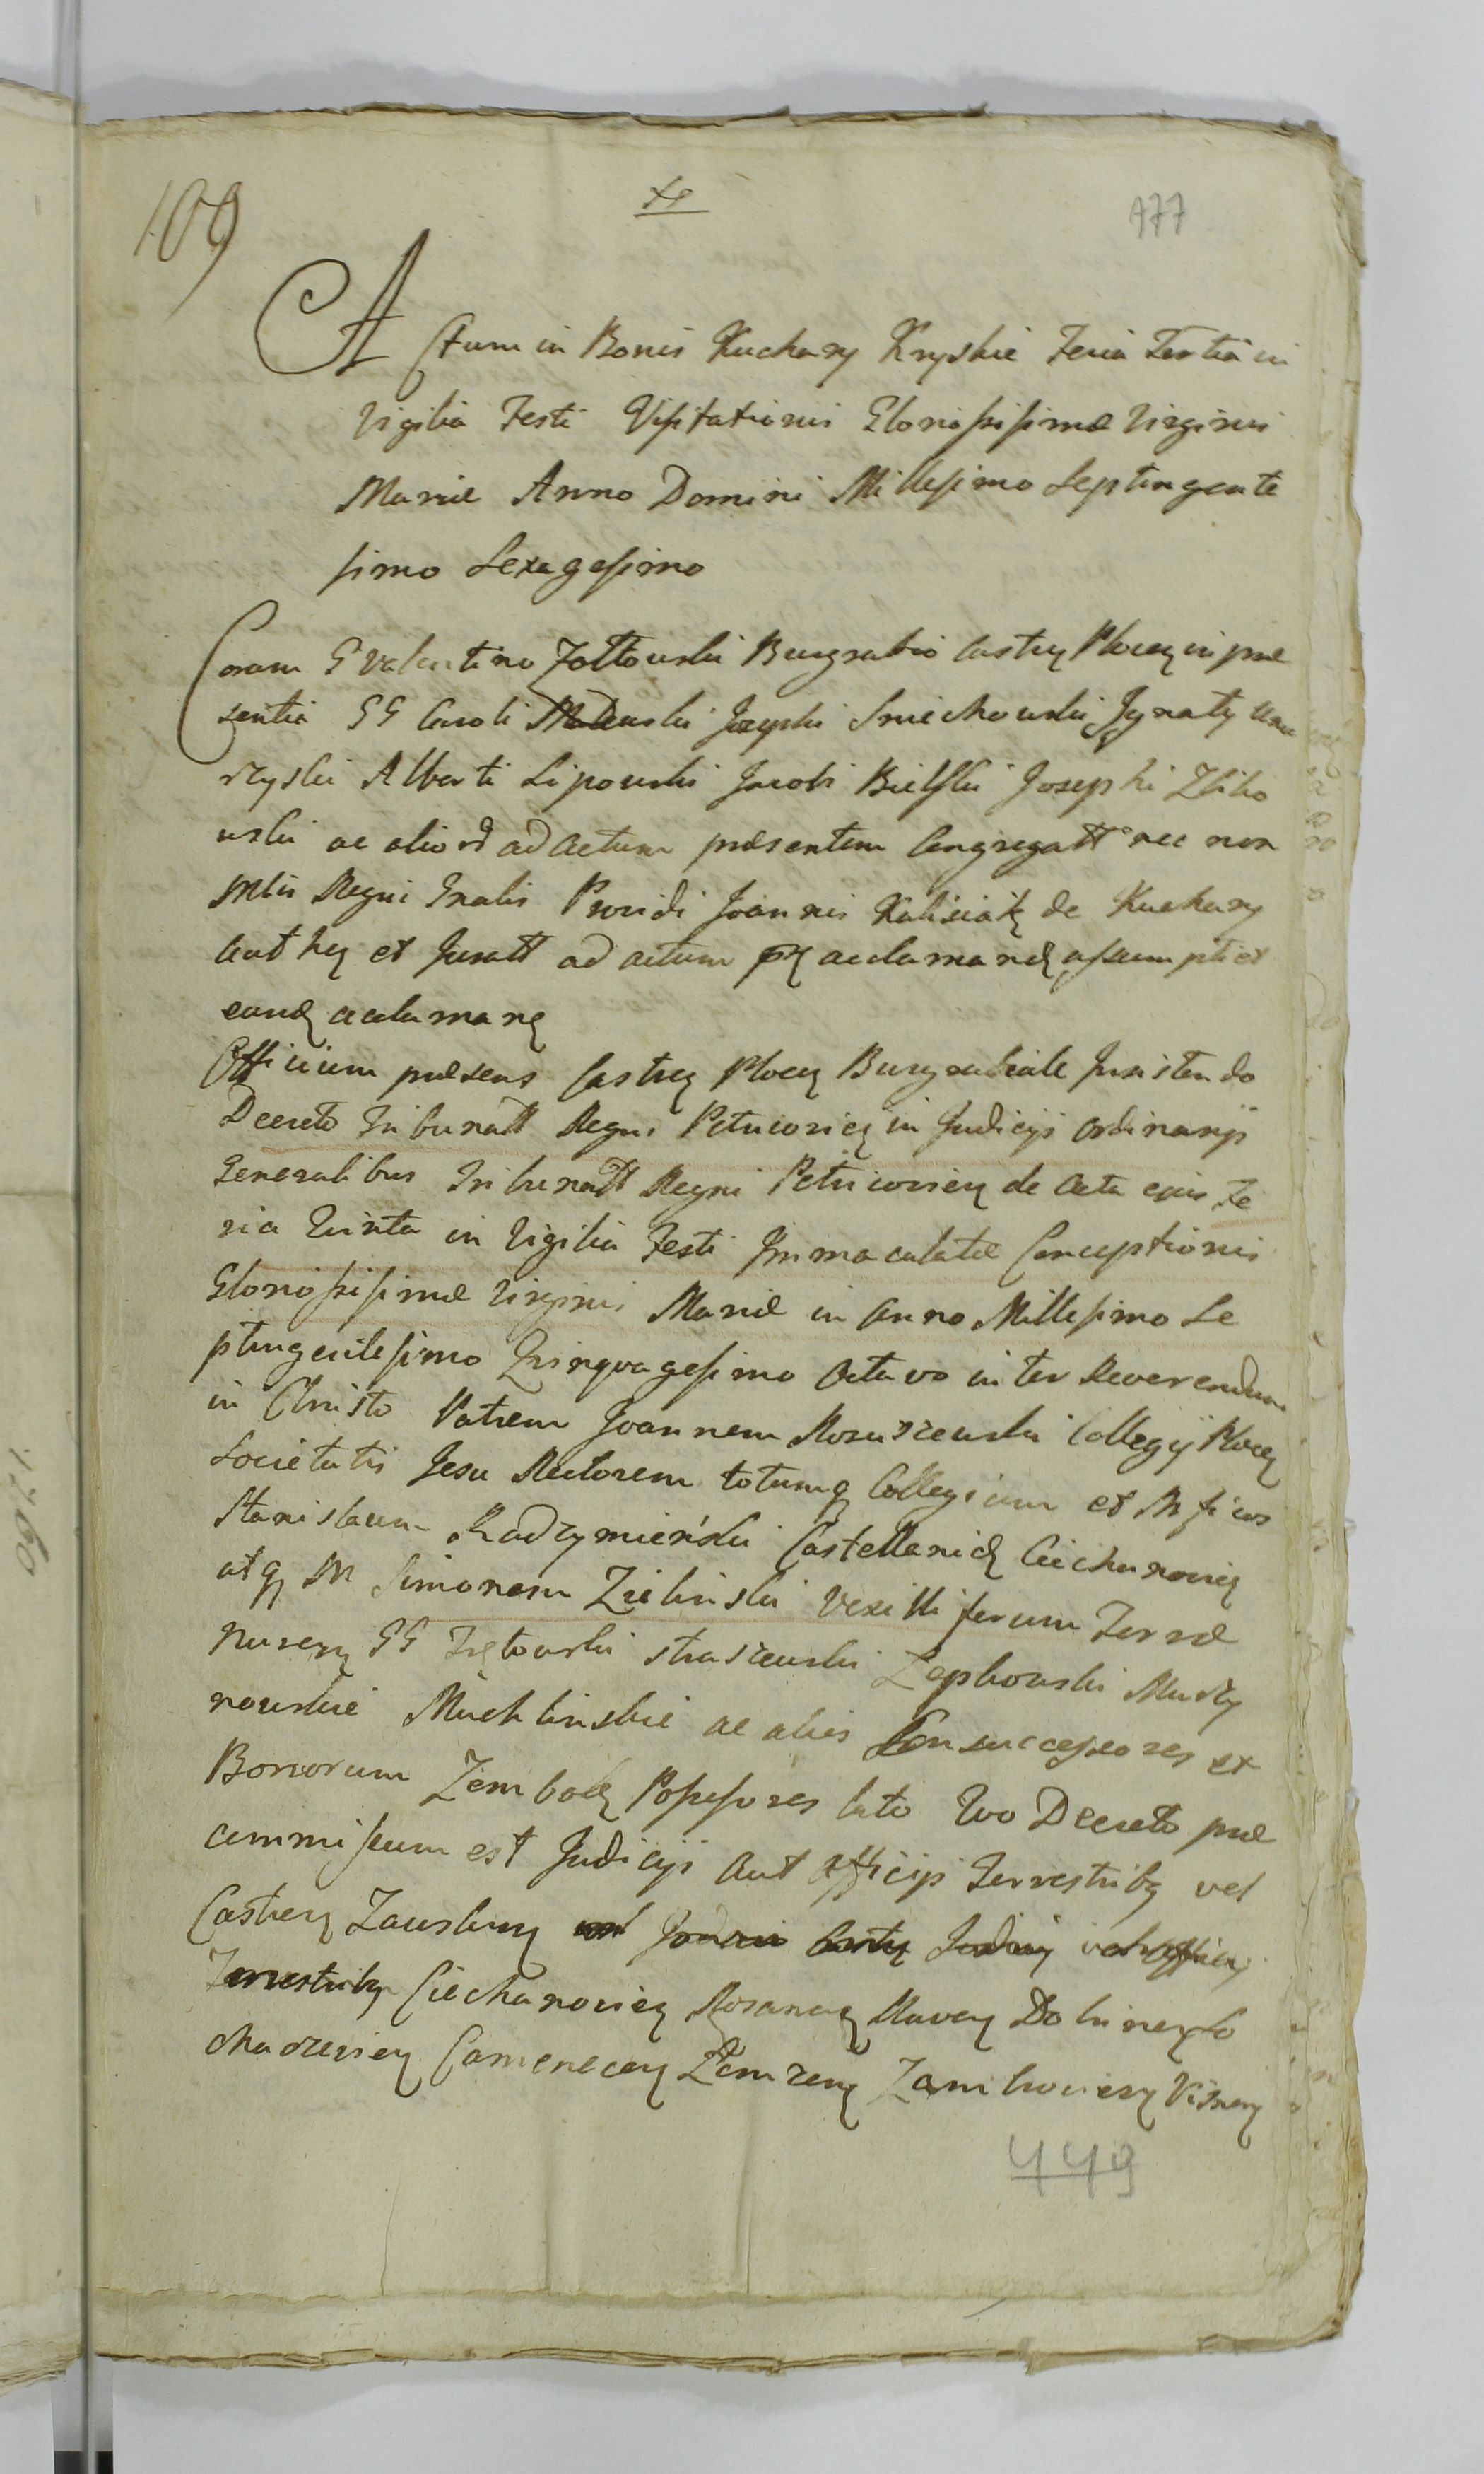 109
177
Actum in Bonis Kuchary Kryskie Feria Tertia in
Vigilia Festi Visitationis Gloriosissimæ Virginis
Mariæ Anno Domini Millesimo Septingente
simo Sexagesimo
Coram G Valentino Zołtowski Burgrabio Castrę Ploceę in præ
sentia GG Caroli Josephi Sniechowski Ignatij
rzyski Alberti Lipowski Jacobi Bielski Josephi Zbiko
wski ac aliorũ ad actum præsentem Congregatt nec non
Mlis Regni Gnalis Providi Joannis Kalisiak de Kuchary
aut hę et Juratt ad actum acclamandę assumpti et
eundę acclamanę
Officium præsens Castrę Plocę Burgrabiale Insistendo
Decreto Tribunatt Regni Petricovieę in Judicijs ordinarijs
Generalibus Tribunatt Regni Petricovieę de Acta ejus Fe
ria Quinta in Vigilia Festi Immaculatæ Conceptionis
Gloriosissimæ Virginis Mariæ in Anno Millesimo Se
ptingentesimo Quinquagesimo Octavo inter Reverendum
in Christo Patrem Joannem Collegij Plocę
Societatis Jesu Rectorem totumq Collegium et Mficos
Stanislaum Radzymieński Castellanidę Ciechanovieę
atq M Simonem Zielinski Vexilliferum Terræ
GG straszewski Zephowski Mursty
nowskie Michlinskie ac alios successores et
Bonorum Zembocę Possessores lato quo Decreto præ
commissum est Judicijs aut officijs Terrestribę vel
Castreę Zawskrę Judicij vel officij
Terrestribę Ciechanovieę Rozaneę Raveę Dobrineę So
chaczevieę Cameneceę Łomzeę Zambrovieę Visneę
449